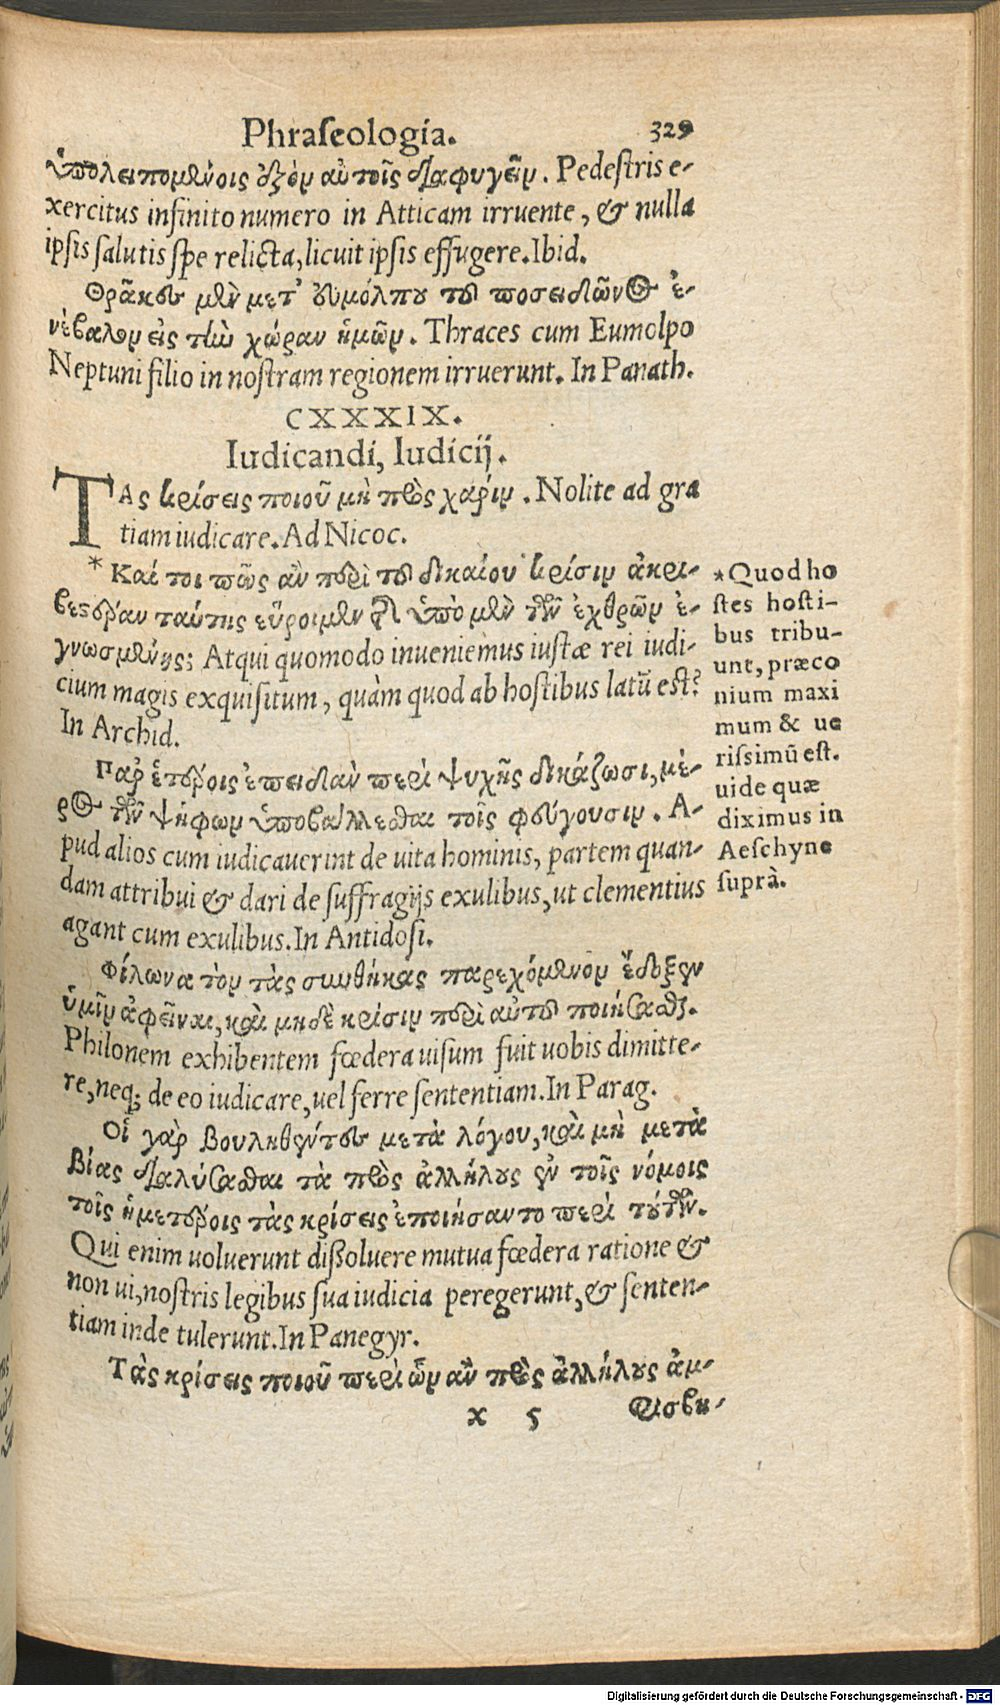 Phraſeologia. 329
ὑπολειπομένοις ἐξὸν αὐτοῖς διαφυγεῖν. Pedeſtris e-
xercitus infinito numero in Atticam irruente, & nulla
ipſis ſalutis ſpe relicta, licuit ipſis effugere. Ibid.
Θρᾶκες μὲν μετ' ἐυμόλπου τοῦ ποσειδῶνος ἐ-
νέβαλον εἰς τὴν χώραν ἡμῶν. Thraces cum Eumolpo
Neptuni filio in noſtram regionem irruerunt. In Panath.
CXXXIX.
Iudicandi, Iudicij.
ΤΑς κρίσεις ποιοῦ μὴ πρὸς χάριν. Nolite ad gra
tiam iudicare. Ad Nicoc.
*Καί τοι πῶς ἂν περὶ τοῦ δικαίου κρίσιν ἀκρι-
βεστέραν ταύτης εὕροιμεν ἢ ὑπὸ μὲν τῶν ἐχθρῶν ἐ-
γνωσμένης; Atqui quomodo inueniemus iuſtæ rei iudi-
cium magis exquiſitum, quàm quod ab hoſtibus latũ eſt?
In Archid.
Παρ' ἑτέροις ἐπειδὰν περὶ ψυχῆς δικάζωσι, μέ-
ρος τῶν ψήφων ὑποβάλλεσθαι τοῖς φεύγουσιν. A-
pud alios cum iudicauerint de uita hominis, partem quan-
dam attribui & dari de ſuffragijs exulibus, ut clementius
agant cum exulibus. In Antidoſi.
Φίλωνα τὸν τὰς συνθήκας παρεχόμενον ἔδοξεν
ὑμῖν ἀφεῖναι, καὶ μηδὲ κρίσιν περὶ αὐτοῦ ποιήσασθαι.
Philonem exhibentem fœdera uiſum fuit uobis dimitte-
re, neq; de eo iudicare, uel ferre ſententiam. In Parag.
Οἱ γὰρ βουληθέντες μετὰ λόγου, καὶ μὴ μετὰ
βίας διαλύσασθαι τὰ πρὸς ἀλλήλους ἐν τοῖς νόμοις
τοῖς ἡμετέροις τὰς κρίσεις ἐποιήσαντο περὶ τούτων.
Qui enim uoluerunt diſſoluere mutua fœdera ratione &
non ui, noſtris legibus ſua iudicia peregerunt, & ſenten-
tiam inde tulerunt. In Panegyr.
Τὰς κρίσεις ποιοῦ περὶ ὧν ἂν πρὸς ἀλλήλους ἀμ-
x 5 φισβη-
*Quod ho
ſtes hoſti-
bus tribu-
unt, præco
nium maxi
mum & ue
riſſimũ eſt.
uide quæ
diximus in
Aeſchyne
ſuprà.
Digitalisierung gefördert durch die Deutsche Forschungsgemeinschaft - DFG